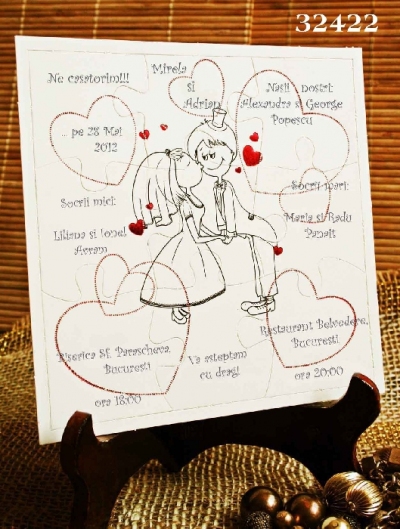 32422
Ne casatorim!!!
Mirela
si
Adrian
Nasii nostri:
Alexandra si George
Popescu
... pe 28 Mai
2012
Socrii mici:
Liliana si Ionel
Avram
Socrii mari:
Maria si Radu
Panait
Biserica Sf. Parascheva,
Bucuresti
ora 18:00
Va asteptam
cu drag!
Restaurant Belvedere,
Bucuresti
ora 20:00